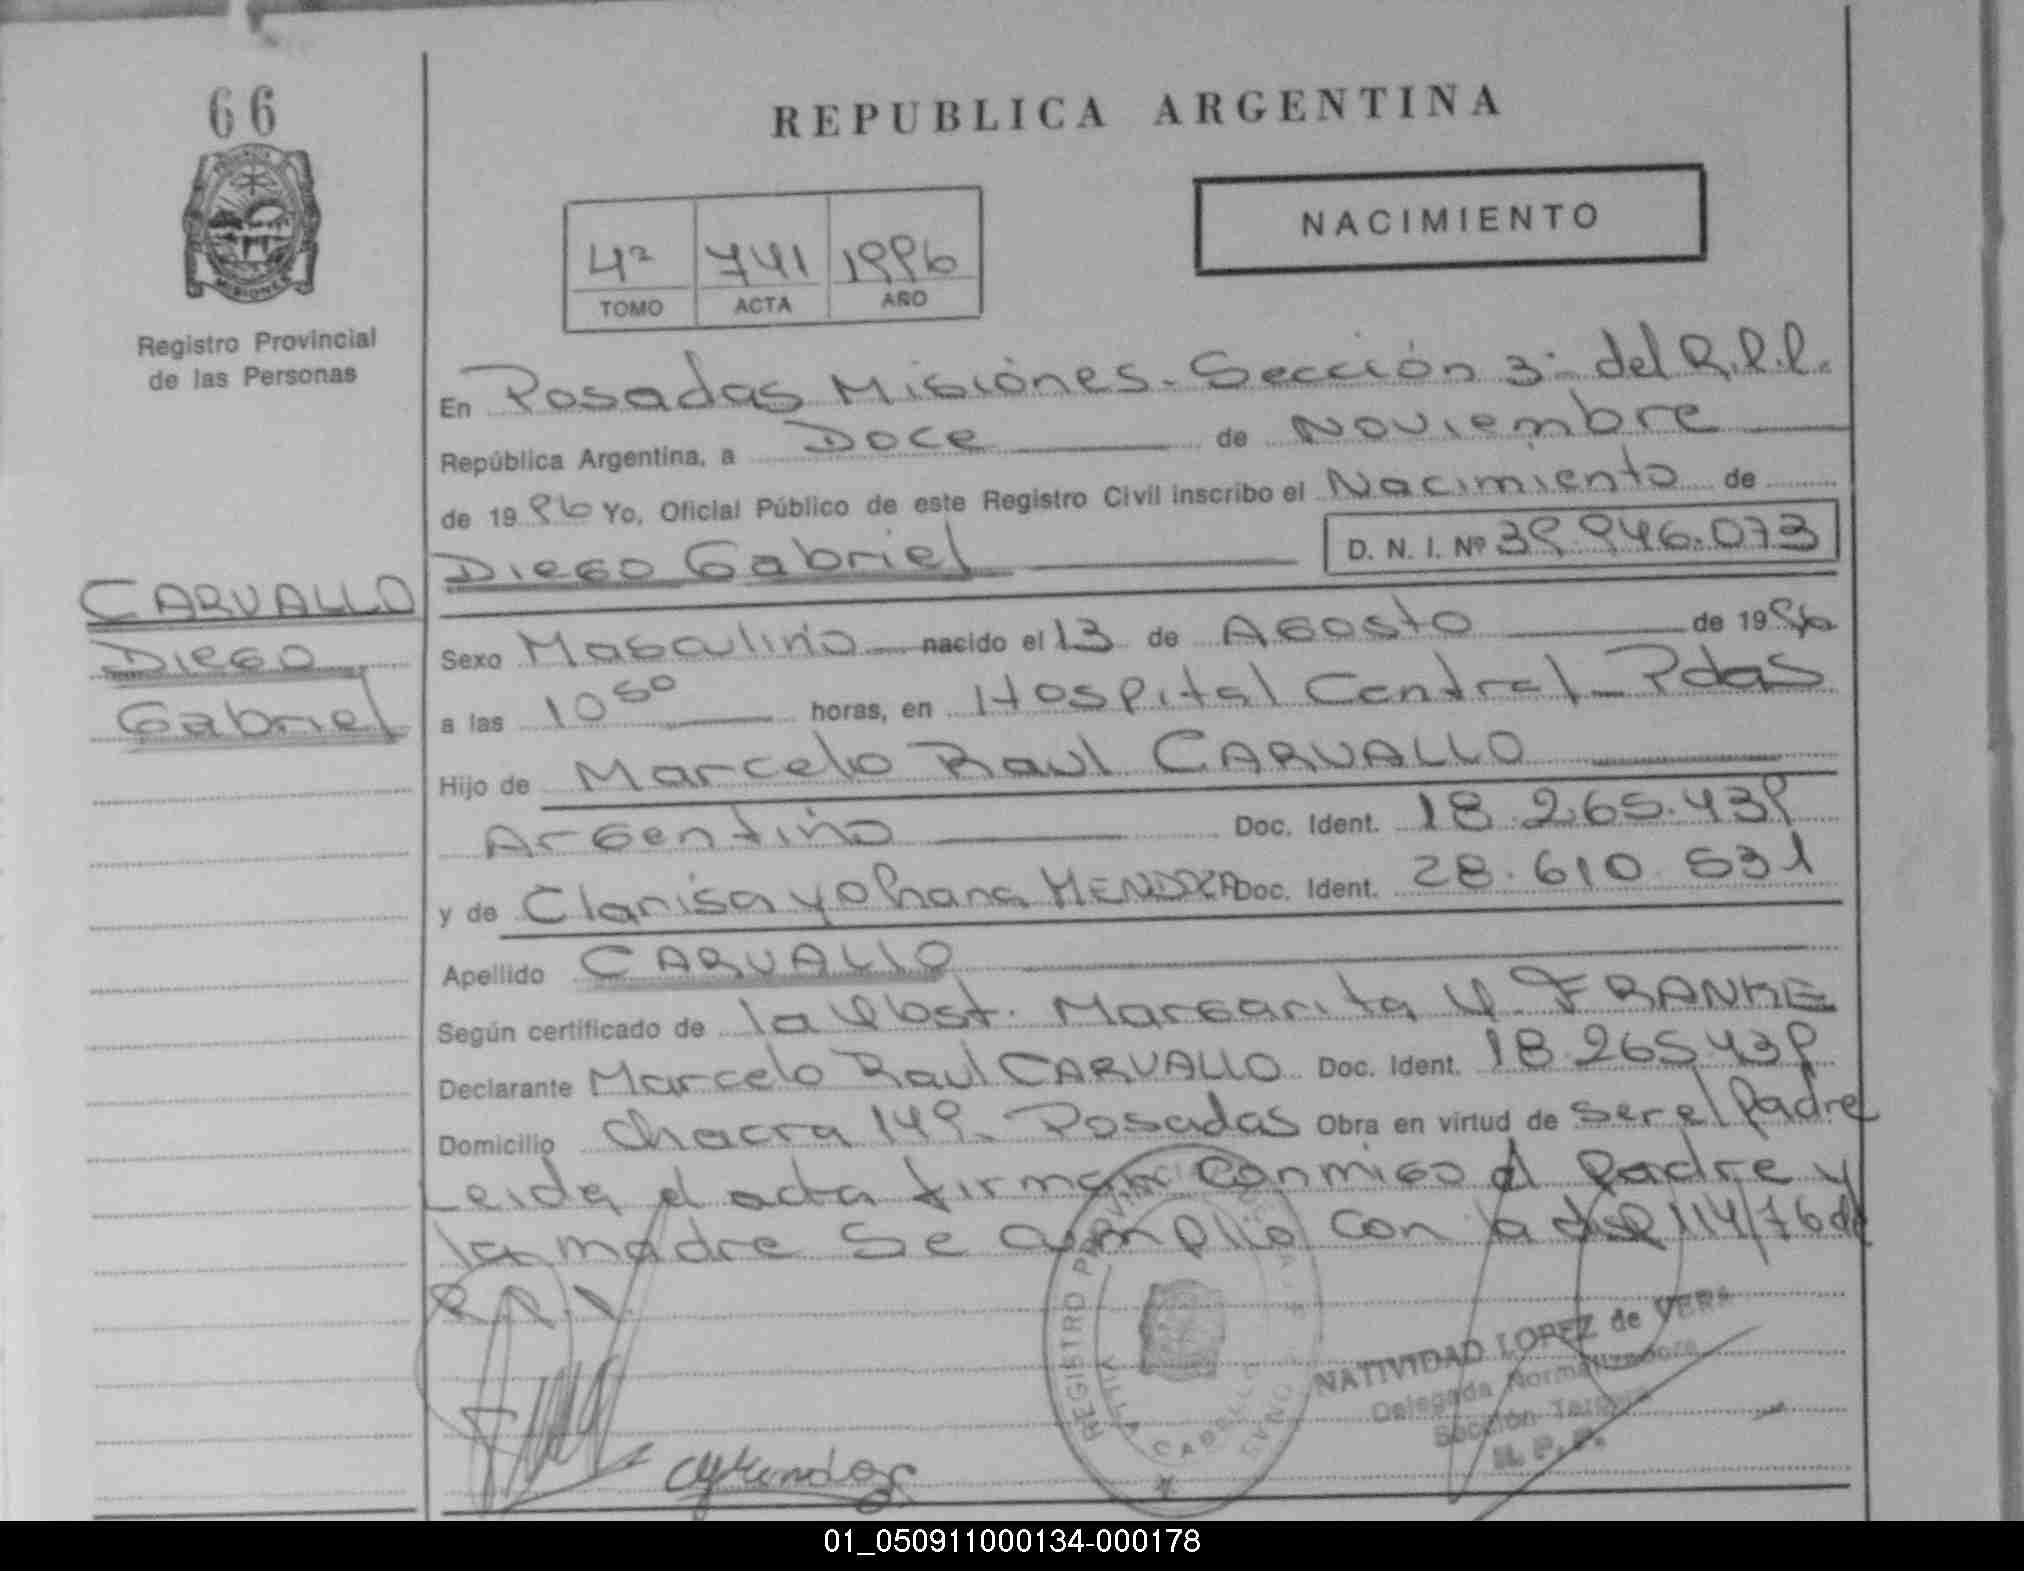 66
REPUBLICA ARGENTINA
NACIMIENTO
4º 741 1996
TOMO ACTA AÑO
Registro Provincial
de las Personas
En Posadas Misiones. Sección 3ª del R.P.P.
República Argentina, a Doce de Noviembre
de 1996 Yo, Oficial Público de este Registro Civil inscribo el Nacimiento de
Diego Gabriel D. N. I. Nº 39.946.073
CARVALLO
Diego
Gabriel
Sexo Masculino nacido el 13 de Agosto de 1996
a las 10 50 horas, en Hospital Central - Pdas
Hijo de Marcelo Raul CARVALLO
Argentino Doc. Ident. 18.265.439
y de Clarisa Yohana Doc. Ident. 28.610.531
Apellido CARVALLO
Según certificado de la Obst. Margarita FRANKE
Declarante Marcelo Raul CARVALLO Doc. Ident. 18.265.439
Domicilio Chacra 149. Posadas Obra en virtud de ser el Padre
Leida el acta firman conmigo el Padre y
la madre Se cumplio con la disp 114/76 del
REGISTRO
VILLA CABELLO
NATIVIDAD LOPEZ de VERA
Delegada Normalizadora
Sección Tercera
R. P. P.
01_050911000134-000178